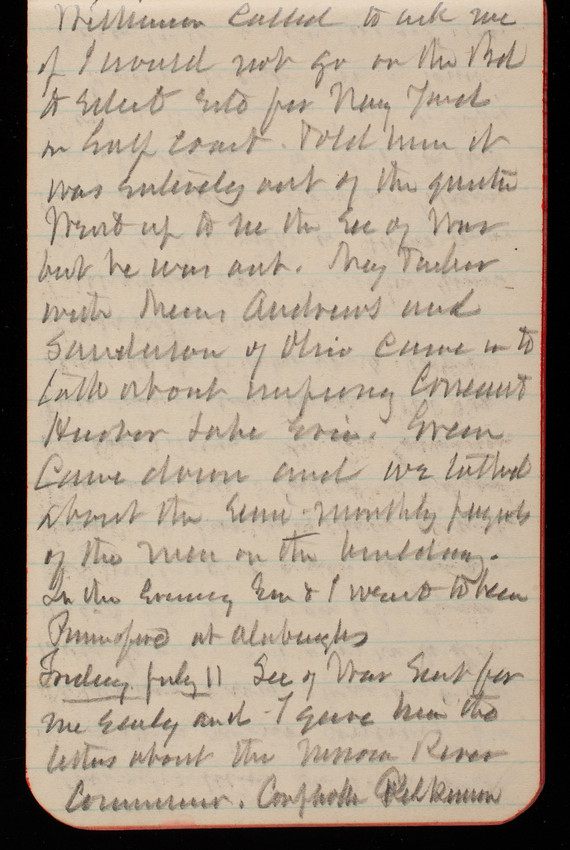 Wilkinson called to ask me
if I would not go on the Bd
to select site for Navy Yard
on Gulf Coast. Told him it
was entirely out of the question
Went up to see the Sec of War
but he was out. Maj
with Messrs Andrews and
Sanderson of Ohio came in to
talk about improving Conneaut
Harbor Lake Erie. Green
came down and we talked
about the semi-monthly payrolls
of the men on the building.
In the evening Em & I went to hear
at
Friday July 11 Sec of War sent for
me early and I gave him the
letters about the Missouri River
Commission.